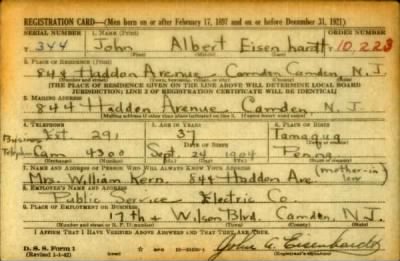 REGISTRATION CARD—(Men born on or after February 17, 1897 and on or before December 31, 1921)
SERIAL NUMBER 1. NAME (Print) ORDER NUMBER
T. 344 John Albert Eisenhardt T10,223
(First) (Middle) (Last)
2. PLACE OF RESIDENCE (Print)
844 Haddon Avenue Camden Camden N.J.
(Number and street) (Town, township, village, or city) (County) (State)
[THE PLACE OF RESIDENCE GIVEN ON THE LINE ABOVE WILL DETERMINE LOCAL BOARD
JURISDICTION; LINE 2 OF REGISTRATION CERTIFICATE WILL BE IDENTICAL]
3. MAILING ADDRESS
844 Haddon Avenue Camden, N.J.
[Mailing address if other than place indicated on line 2. If same insert word same]
4. TELEPHONE 5. AGE IN YEARS 6. PLACE OF BIRTH
Business Ext 291 37 Tamaqua
DATE OF BIRTH
Telephone Cam 4300 Sept. 24 1904 Penna
7. NAME AND ADDRESS OF PERSON WHO WILL ALWAYS KNOW YOUR ADDRESS (mother-in law)
Mrs. William Kern, 844 Haddon Ave
8. EMPLOYER'S NAME AND ADDRESS
Public Service Electric Co.
9. PLACE OF EMPLOYMENT OR BUSINESS
17th & Wilson Blvd. Camden, N.J.
(Number and street or R. F. D. number) (Town) (County) (State)
I AFFIRM THAT I HAVE VERIFIED ABOVE ANSWERS AND THAT THEY ARE TRUE.
D. S. S. Form 1
(Revised 1-1-42) John A. Eisenhardt